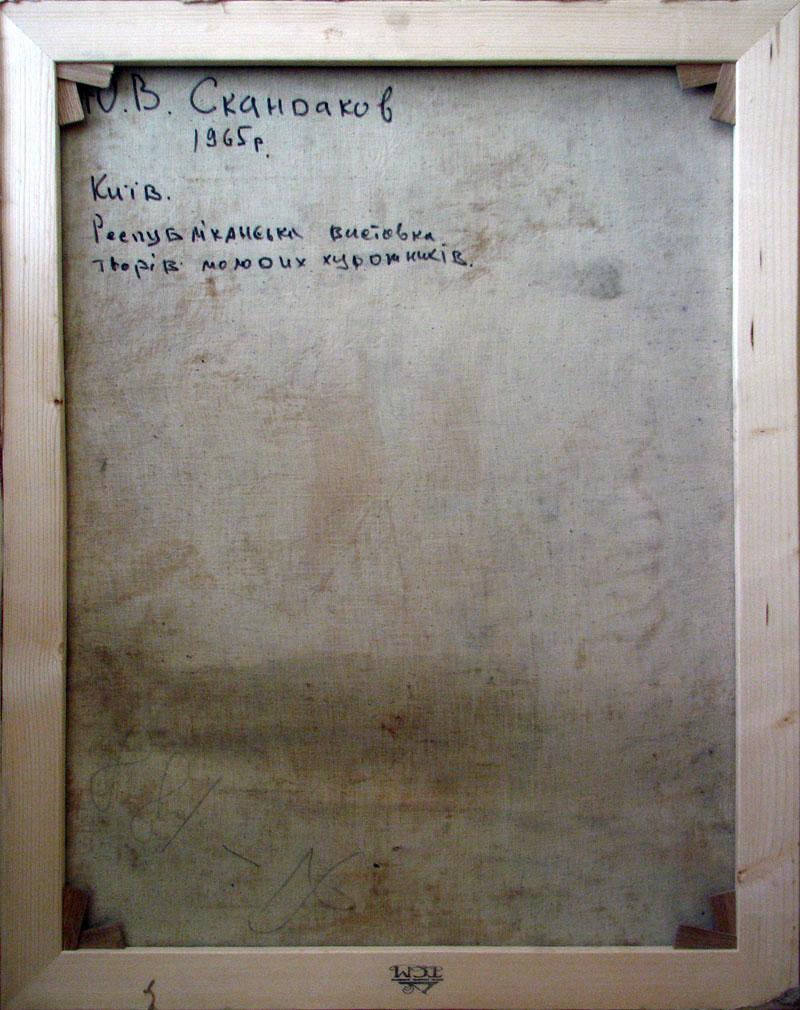 Ю.В. Скандаков
1965р.
Київ.
Республіканська виставка
творів молодих художників.